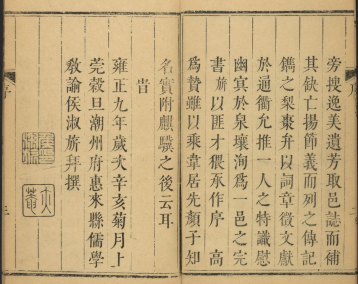 旁搜逸美遺芳取邑誌而補
其欽亡揚節義而列之傳記
鐫之梨棗弁以詞章徵文獻
於通衢允推一人之特識慰
幽冥於泉壤洵爲一邑之完
書旂以匪才猥承作序　高
爲贊雖以乘韋居先顏子知
名實附麒驥之後云耳
旹
雍正九年歲次辛亥菊月上
莞穀旦潮州府惠來縣儒學
教諭侯淑旂拜撰
序